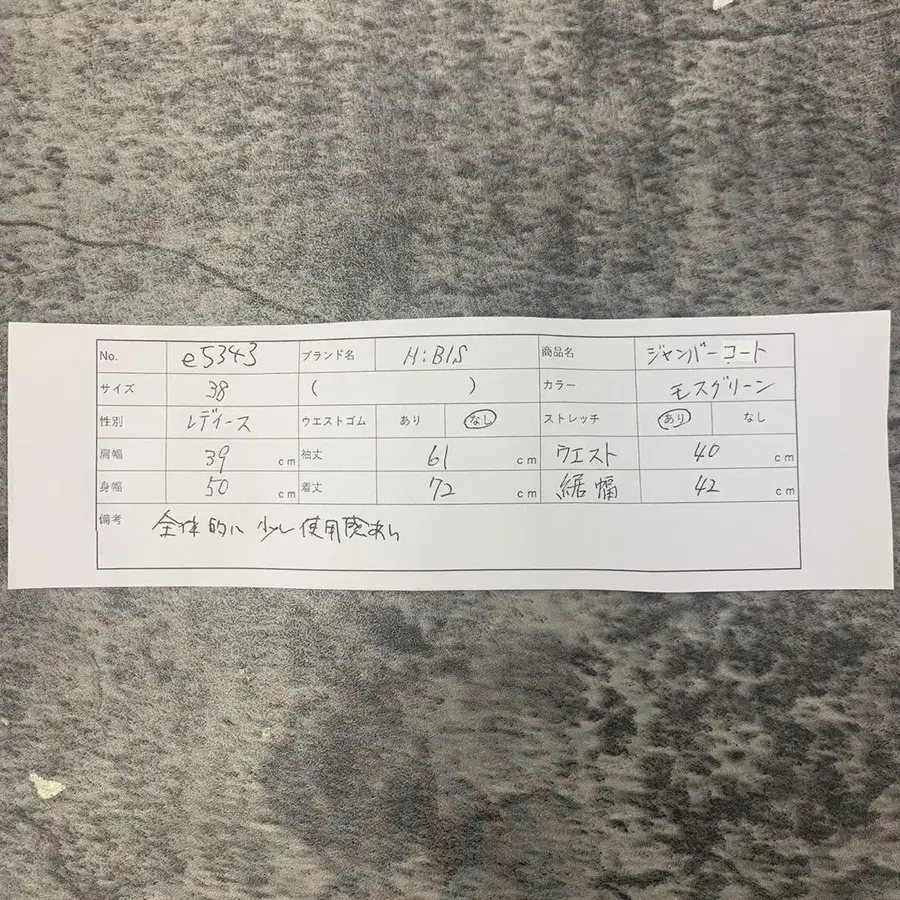 No. e5343 ブランド名 H:BIS 商品名 ジャンパーコート
サイズ 38 ( ) カラー モスグリーン
性別 レディース ウエストゴム あり なし ストレッチ あり なし
肩幅 39 cm 袖丈 61 cm ウエスト 40 cm
身幅 50 cm 着丈 72 cm 裾幅 42 cm
備考 全体的に少し使用感あり